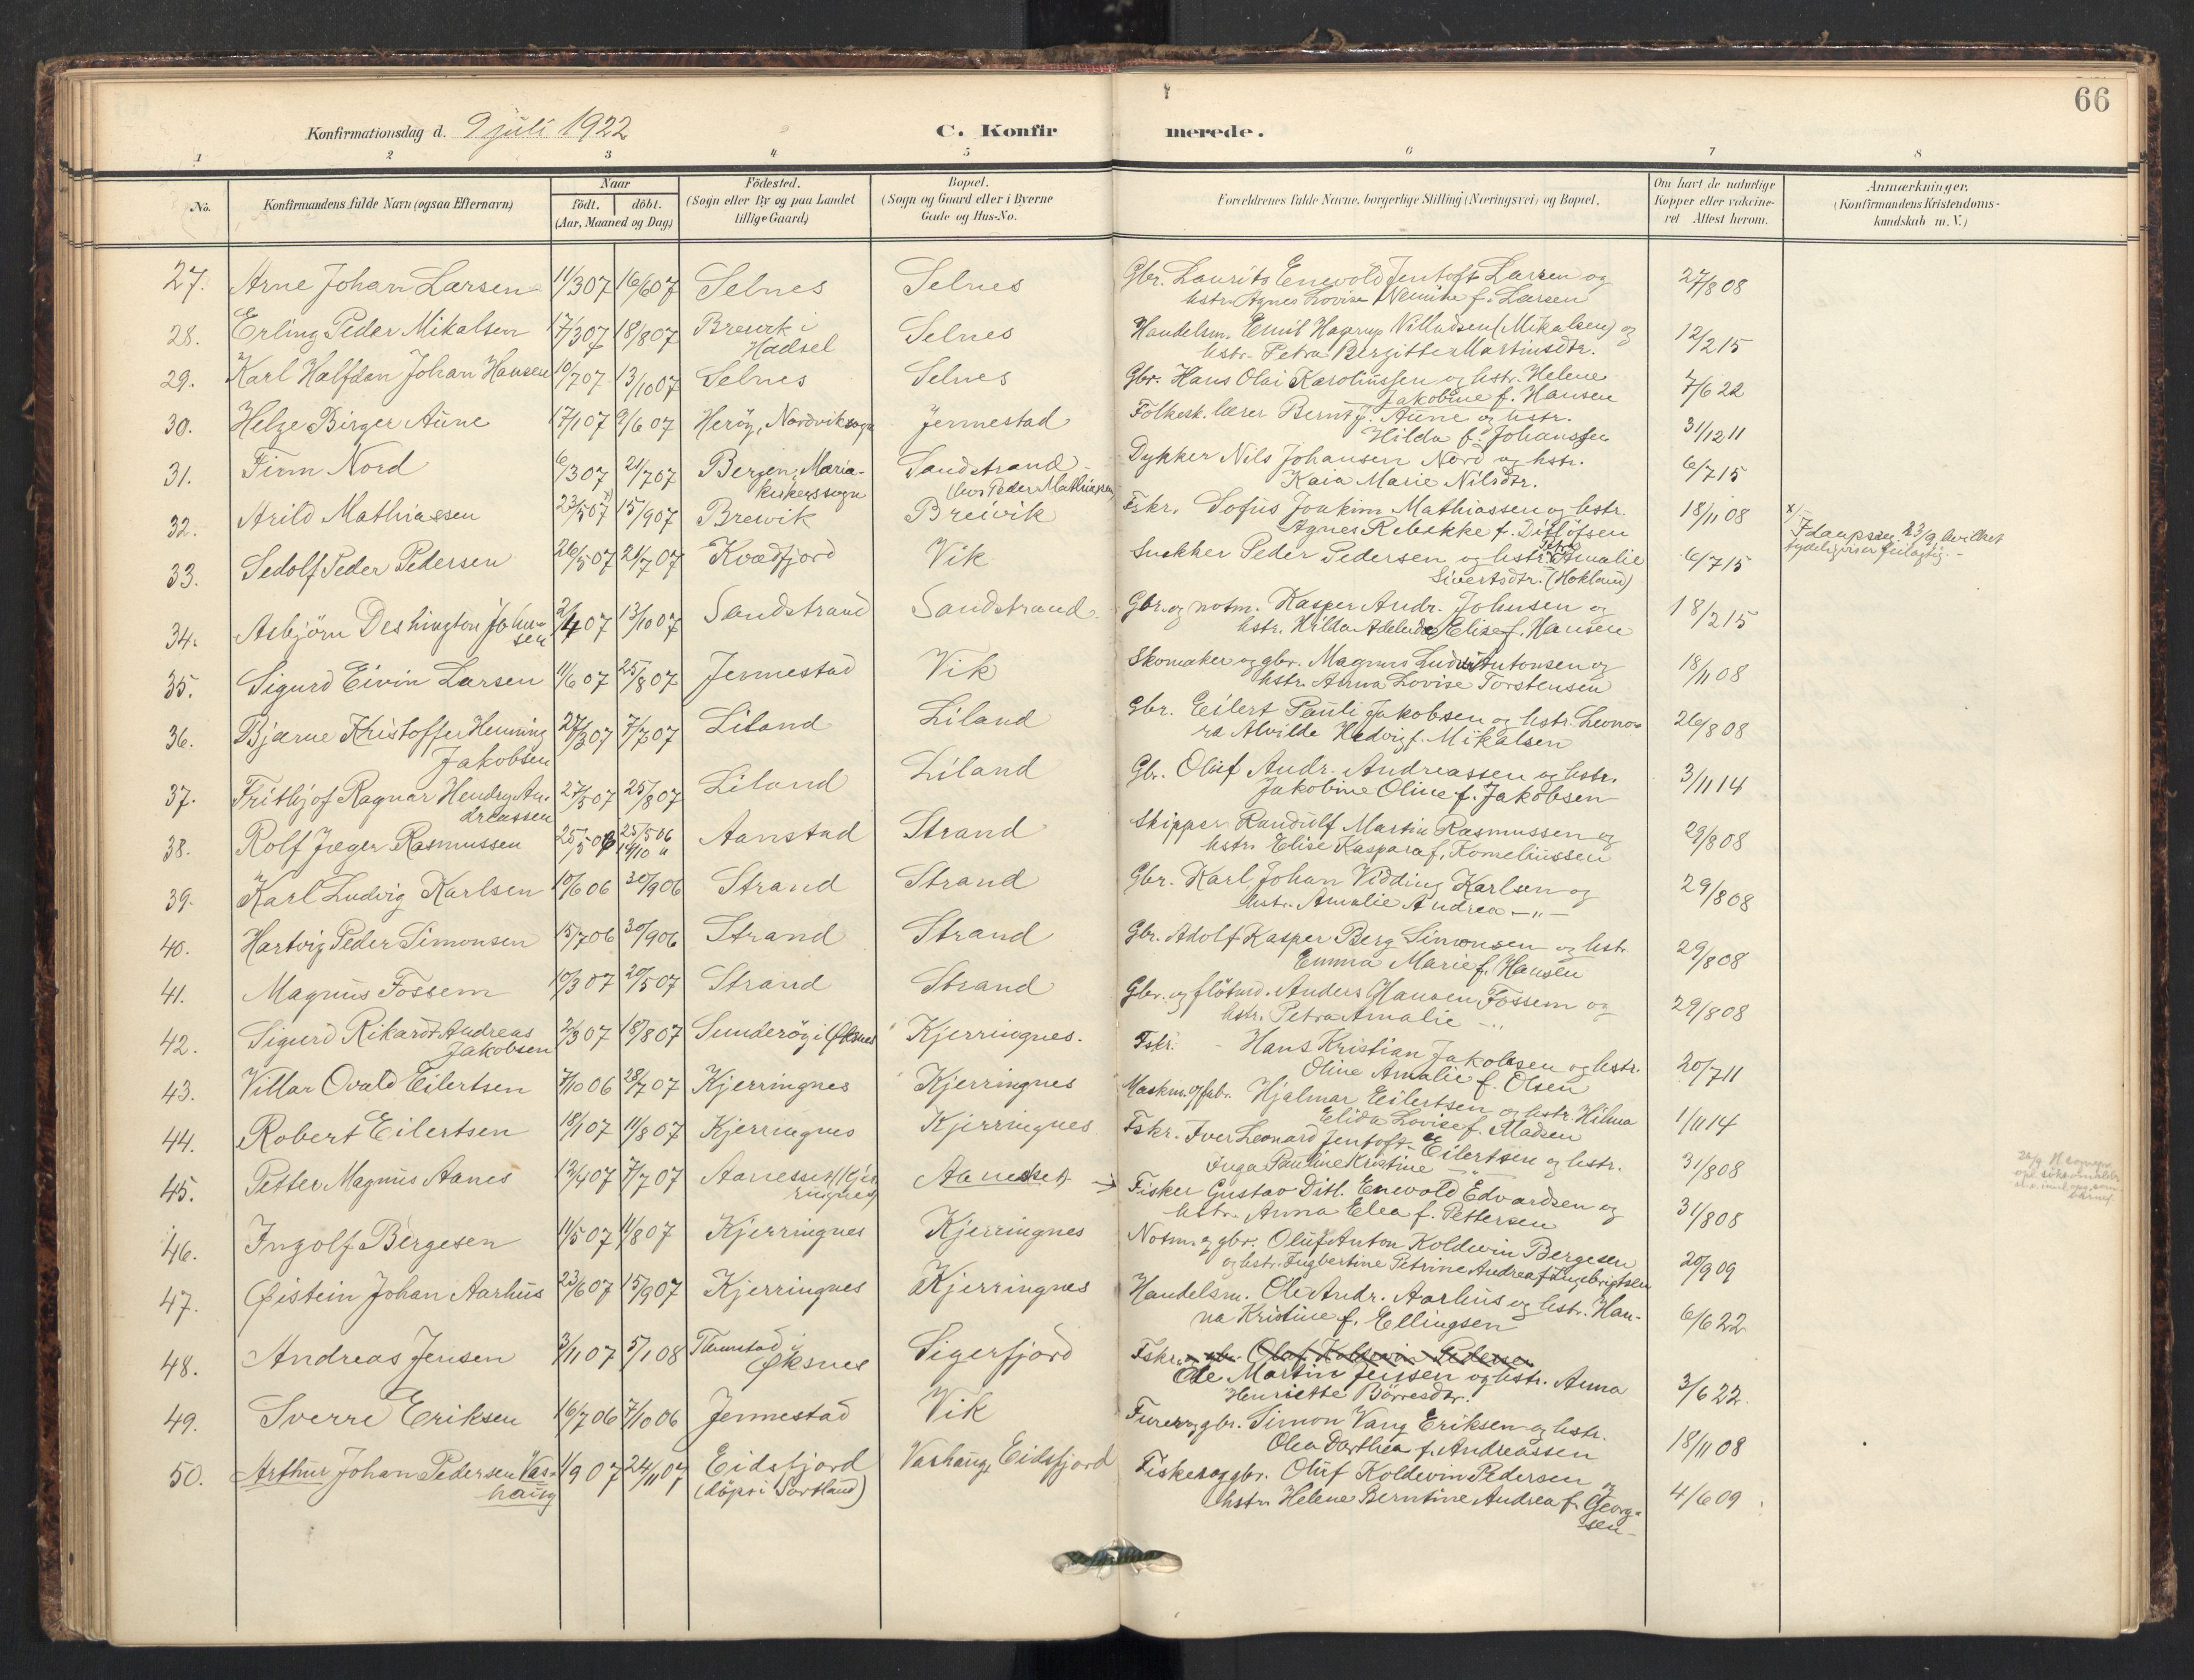 66
Konfirmationsdag d. 9 juli 1922
C. Konfirmerede.
1 2 3 4 5 6 7 8
No.
Konfirmandens fulde Navn (ogsaa Efternavn)
Naar
født. døbt.
(Aar, Maaned og Dag)
Födested.
(Sogn eller By og paa Landet
tillige Gaard)
Bopæl.
(Sogn og Gaard eller i Byerne
Gade og Hus-No.
Forældrenes fulde Navne, borgerlige Stilling (Næringsvei) og Bopæl.
Om havt de naturlige
Kopper eller vakcine-
ret Attest herom.
Anmærkninger.
(Konfirmandens Kristendoms-
kundskab m. V.)
27. Arne Johan Larsen 11/3 07 16/6 07 Selnes Selnes Gbr. Laurits Enevold Jentoft Larsen og
hstr. Agnes Lovise f. Larsen 27/8 08
28. Erling Peder Mikalsen 17/3 07 18/8 07 Breivik i
Hadsel Selnes Handelsm. Emil Hagerup Villadsen (Mikalsen) og
hstr. Petra Bergitte Martinsdtr. 12/2 15
29. Karl Halfdan Johan Hansen 10/7 07 13/10 07 Selnes Selnes Gbr. Hans Olai Karoliussen og hstr. Helene
Jakobine f. Hansen 7/6 22
30. Helge Birger Aune 17/1 07 9/6 07 Herøy, Nordvik sogn Jennestad Folkesk. lærer Bernt J. Aune og hstr.
Hilda f. Johanssen 31/12 11
31. Finn Nord 6/3 07 21/7 07 Bergen, Maria-
kirkers sogn Sandstrand
(hos Peder Mathiassen) Dykker Nils Johansen Nord og hstr.
Kaia Marie Nilsdtr. 6/7 15
32. Arild Mathiassen 23/5 07 15/9 07 Breivik Breivik Fskr. Sofus Joakim Mathiassen og hstr.
Agnes Rebekke f. Ditlofsen 18/11 08 x/
33. Sedolf Peder Pedersen 26/5 07 21/7 07 Kvædfjord Vik Snekker Peder Pedersen og hstr. Amalie
Sivertsdtr. (Hokland) 6/7 15
34. Asbjörn Deshington John-
sen 2/4 07 13/10 07 Sandstrand Sandstrand Gbr. og notm. Kasper Andr. Johnsen og
hstr. Hilda Adelude Elise f. Hansen 18/2 15
35. Sigurd Eivin Larsen 11/6 07 25/8 07 Jennestad Vik Skomaker og gbr. Magnus Ludv. Antonsen og
hstr. Anna Lovise Torstensen 18/11 08
36. Bjarne Kristoffer Henning
Jakobsen 27/3 07 7/7 07 Liland Liland Gbr. Eilert Pauli Jakobsen og hstr. Leono-
ra Alvilde Hedvig f. Mikalsen 26/8 08
37. Frithjof Ragnar Hendry An-
dreassen 27/5 07 25/8 07 Liland Liland Gbr. Oluf Andr. Andreassen og hstr.
Jakobine Oline f. Jakobsen 3/11 14
38. Rolf Jæger Rasmussen 25/5 06 25/5 06
14/10 " Aanstad Strand Skipper Randulf Martin Rasmussen og
hstr. Elise Kaspara f. Korneliussen 29/8 08
39. Karl Ludvig Karlsen 10/6 06 30/9 06 Strand Strand Gbr. Karl Johan Vidding Karlsen og
hstr. Amalie Andrea — " — 29/8 08
40. Hartvig Peder Simonsen 15/7 06 30/9 06 Strand Strand Gbr. Adolf Kasper Berg Simonsen og hstr.
Emma Marie f. Hansen 29/8 08
41. Magnus Fossem 10/3 07 20/5 07 Strand Strand Gbr. og Anders Hansen Fossem og
hstr. Petra Amalie — " 29/8 08
42. Sigurd Rikardt Andreas
Jakobsen 2/3 07 18/8 07 Sunderøy i Øksnes Kjerringnes. Fskr. Hans Kristian Jakobsen og hstr.
Oline Amalie f. Olsen 20/7 11
43. Villar Ovald Eilertsen 7/10 06 28/7 07 Kjerringnes Kjerringnes Maskm. og gbr. Hjalmar Eilertsen og hstr. Hilma
Elida Lovise f. Madsen 1/11 14
44. Robert Eilertsen 18/1 07 11/8 07 Kjerringnes Kjerringnes Fskr. Iver Leonard Jentoft Eilertsen og hstr.
Inga Pauline Kristine — " 31/8 08
45. Petter Magnus Aanes 13/4 07 7/7 07 Aanessen (Kjer-
ringnes) Aanessen → Fisker Gustav Ditl. Enevold Edvardsen og
hstr. Anna Elea f. Pettersen 31/8 08
46. Ingolf Bergesen 11/5 07 11/8 07 Kjerringnes Kjerringnes Notm. og gbr. Oluf Anton Koldevin Bergesen
og hstr. Ingbertine Petrine Andrea f. Ingebrigtsen 20/9 09
47. Øistein Johan Aarhus 23/6 07 15/9 07 Kjerringnes Kjerringnes Handelsm. Ole Andr. Aarhus og hstr. Han-
na Kristine f. Ellingsen 6/6 22
48. Andreas Jensen 3/11 07 5/1 08 Tunstad i
Øksnes Sigerfjord Fskr. og gbr. Oluf Koldevin Pedersen
Ole Martin Jensen og hstr. Anna
Henriette Börresdtr. 3/6 22
49. Sverre Eriksen 16/7 06 7/10 06 Jennestad Vik Furer og gbr. Simon Vang Eriksen og hstr.
Olea Dorthea f. Andreassen 18/11 08
50. Arthur Johan Pedersen Vas-
haug 1/9 07 24/11 07 Eidsfjord
(döpt i Sortland) Vashaug, Eidsfjord Fisker og gbr. Oluf Koldevin Pedersen og
hstr. Helene Berntine Andrea f. Georg-
sen 4/6 09